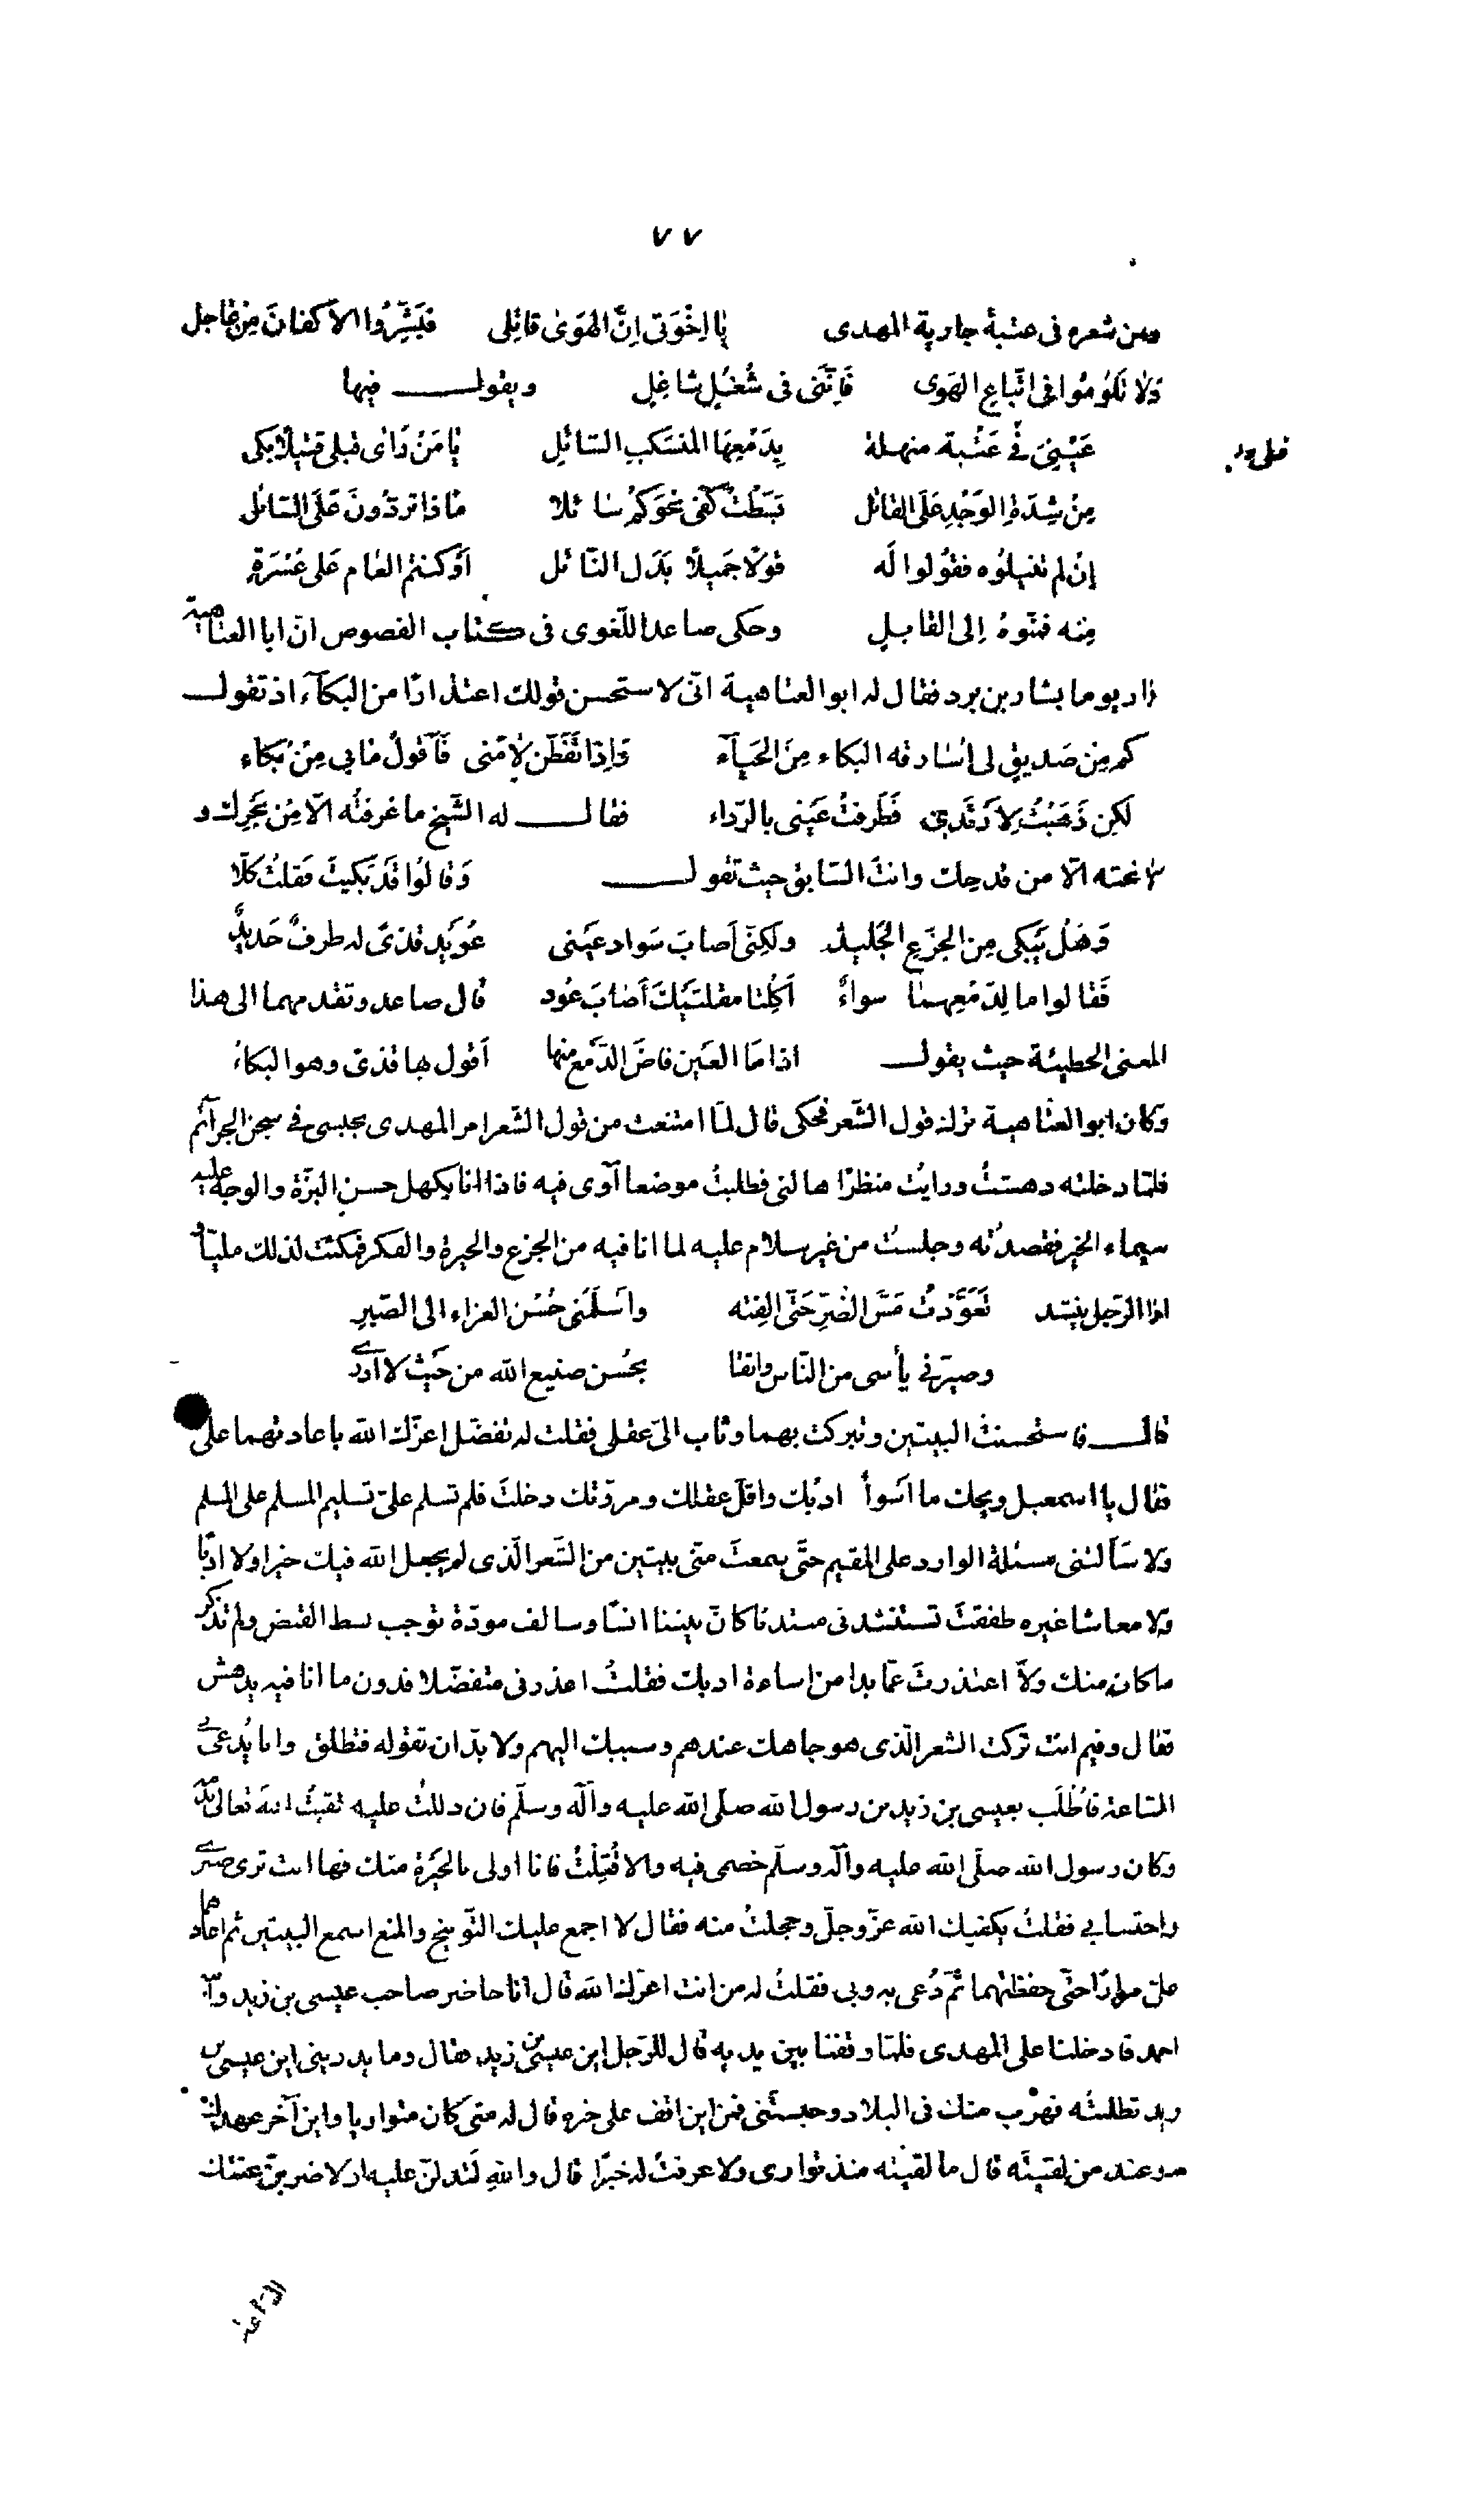 ٧٧
ومن شعره فى عتبة جارية المهدى يا اِخْوَتى اِنَّ الهَوىٰ قاتِلى فبَشِّرُوا الاَكفانَ مِن عاجل
وَلا تَلُومُوا فى اتّباعِ الهَوى فَاِنَّنى فى شُغُلٍ شاغِلِ ويقول فيها
عَيْنِىَ فى عَتْبة منهلة بِدَمْعِهَا المنسَكبِ السّائلِ يٰا مَنْ رَأى قبلى قتيلًا بكى
مِنْ شِدّةِ الوَجْدِ عَلَى القاتل بَسَطْتُ كَفّى نحوَكُم سٰائلا مٰا ذا تردّونَ عَلَى السّائل
اِنْ لم تنيلُوه فقُولوا لَه قولًا جَميلًا بَدَل النّائل اَوْ كنتم العٰام عَلى عُسْرَةٍ
مِنه فمنّوهُ اِلى القابل وحكى صاعد اللّغوى فى كتاب الفصوص انّ ابا العتاهية
زار يوما بشار بن برد فقال له ابو العتاهية انّى لاستحسن قولك اعتذارًا من البكآء اذ تقول
كم مِن صَديقٍ لى اُسٰارقه البكاء مِنَ الحَيآء وَاِذا تَفَطّن لٰامَنى فَاَقولُ مٰا بى مِنْ بُكاء
لَكِن ذَهَبْتُ لِاَرْتَدى فَطَرفتُ عَيْنى بالرّداء فقال له الشّيخ ما غرفتُه الّا مِن بَحرك و
لا نحته الّا من قدحك وانتَ السّابق حيث تقول وَقالُوا قَد بَكيتَ فقلتُ كلّا
وَهَلْ يَبكى مِن الجزَعِ الجَليدُ ولكِنّى اَصابَ سَواد عَينى عُوَيْد قذىً له طرفٌ حَديدٌ
فَقالوا ما لِدَمْعِهمٰا سواءٌ اَكِلْتا مقلتَيْكَ اَصٰابَ عُود قال صاعد وتقدمهما الى هذا
المعنى الحطيئة حيث يقول اذا مَا العَين فاضَ الدّمْع منها اَقول بها قذىً وهو البكاءُ
وكان ابو العتاهية ترك قول الشّعر فحكى قال لمّا امتنعت من قول الشّعر امر المهدى بحبسى فى سجن الجرآئم
فلمّا دخلته دهشتُ ورايت منظرًا هالنى فطلبتُ موضعا آوى فيه فاذا انا بكهل حسن البزّة والوجه عليه
سيماء الخير فقصدتُه وجلستُ من غير سلام عليه لما انا فيه من الجزع والحيرة والفكر فمكثت كذلك مليّا و
اذا الرّجل ينشد تَعَوَّدْتُ مَسَّ الضُرِّ حَتّى اَلِفته واَسْلَمَنى حُسْن العزاء الى الصّبرِ
وصيّرنى يأسى من النّاس واثقا بحُسن صنيع الله من حَيث لا اَدرى
قال فاستحسنتُ البيتين وتبركت بهما وثاب الىّ عقلى فقلت له تفضّل اعزّك الله باعادتهما علىّ
فقال يا اسمعيل ويحك ما اَسْوأ ادبك واقلّ عقلك ومروّتك دخلتَ فلم تسلم علىّ تسليم المسلم على المسلم
ولا سَألتنى مسئلة الوارد على المقيم حتّى سمعتَ منّى بيتين من الشّعر الّذى لم يجعل الله فيك خيرا ولا ادبًا
ولا معاشا غيره طفقتَ تستنشدنى مبتدئا كانّ بيننا انسًا وسالف مودّة توجب بسط القبض ولم تذكر
ما كان منك ولَا اعتذرتَ عمّا بدا من اساءة ادبك فقلتُ اعذرنى متفضّلا فدون ما انا فيه يدهش
فقال وفيم انت تركت الشعر الّذى هو جاهك عندهم وسببك اليهم ولا بدّ ان تقوله فتطلق وانا يُدعىٰ بى
السّاعة فاُطْلَب بعيسى بن زيد بن رسول الله صلّى الله عليه وآله وسلّم فان دللتُ عليه لقيتُ الله تعالى بدمه
وكان رسول الله صلّى الله عليه وآله وسلّم خصمى فيه والا قُتِلْتُ فانا اولى بالحَيْرة منك فها انت ترى صبرى
واحتسابى فقلتُ يكفيك الله عزّ وجلّ وخجلتُ منه فقال لا اجمع عليك التّوبيخ والمنع اسمع البيتين ثم اعادهما
علىّ مرارًا حتّى حفظتهما ثمّ دُعى به وبى فقلتُ له من انت اعزّك الله قال انا حاضر صاحب عيسى بن زيد وابنه
احمد فادخلنا على المهدى فلمّا وقفنا بين يديه قال للرّجل اين عيسى بن زيد فقال وما يدرينى اين عيسى بن
زيد تطلبتُه فهرب منك فى البلاد وحبستَنى فمن اين اقف على خبره قال له متى كان متواريا واين آخر عهدك
به وعند من لقيتَه قال ما لقيته منذ توارى ولا عرفتُ له خبرًا قال والله لَتدلنّ عليه او لاضربنّ عنقك